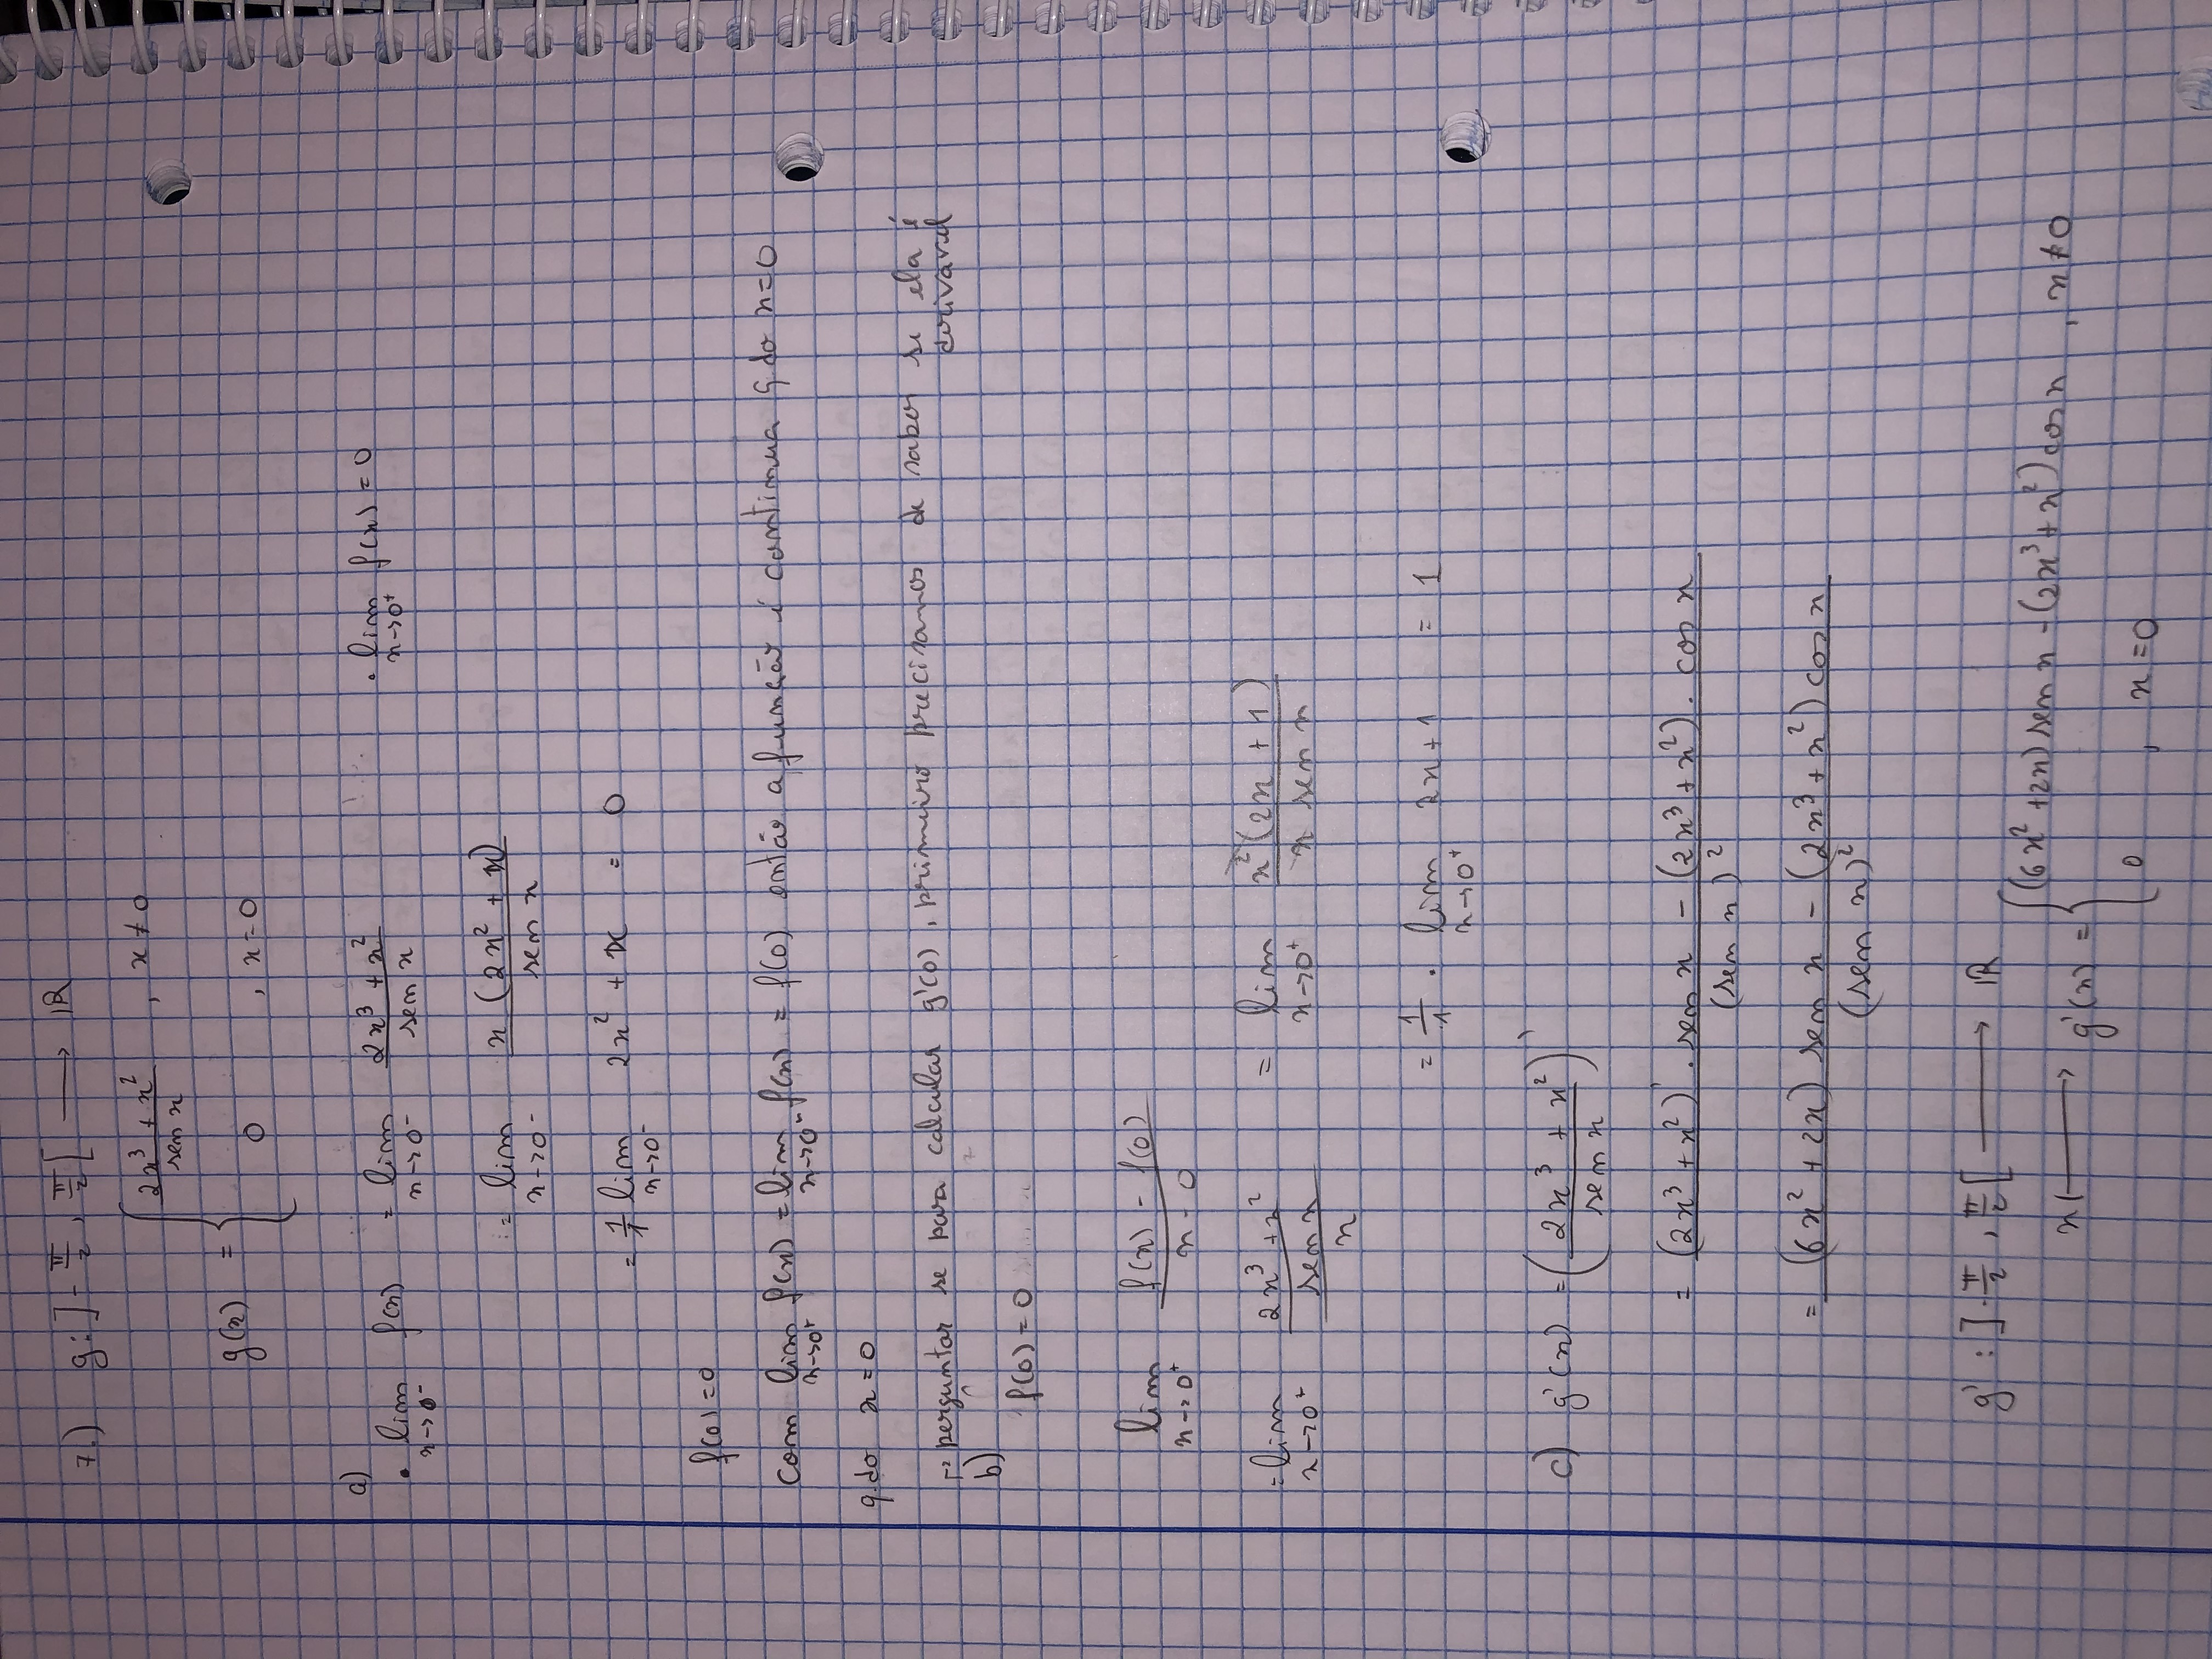 7.) g: ]-π/2, π/2[ ⟶ IR
g(x) = { (2x³ + x²)/(sen x) , x ≠ 0
0 , x = 0
a)
• lim x→0⁻ f(x) = lim x→0⁻ (2x³ + x²)/(sen x) • lim x→0⁺ f(x) = 0
= lim x→0⁻ x(2x² + x)/(sen x)
= 1/1 lim x→0⁻ 2x² + x = 0
f(0) = 0
Com lim x→0⁺ f(x) = lim x→0⁻ f(x) = f(0) então a função é continua q.do x=0
q.do x = 0
perguntar se para calcular g'(0), primeiro precisamos de saber se ela é
derivavel
b)
f(0) = 0
lim x→0⁺ (f(x) - f(0))/(x - 0)
= lim x→0⁺ ((2x³ + x²)/(sen x))/x = lim x→0⁺ x²(2x + 1)/(x sen x)
= 1/1 . lim x→0⁺ 2x + 1 = 1
c) g'(x) = ((2x³ + x²)/(sen x))'
= ((2x³ + x²)' . sen x - (2x³ + x²) . cos x)/(sen x)²
= ((6x² + 2x) sen x - (2x³ + x²) cos x)/(sen x)²
g' : ]-π/2, π/2[ ⟶ IR
x ⟼ g'(x) = { (6x² + 2x) sen x - (2x³ + x²) cos x , x ≠ 0
0 , x = 0